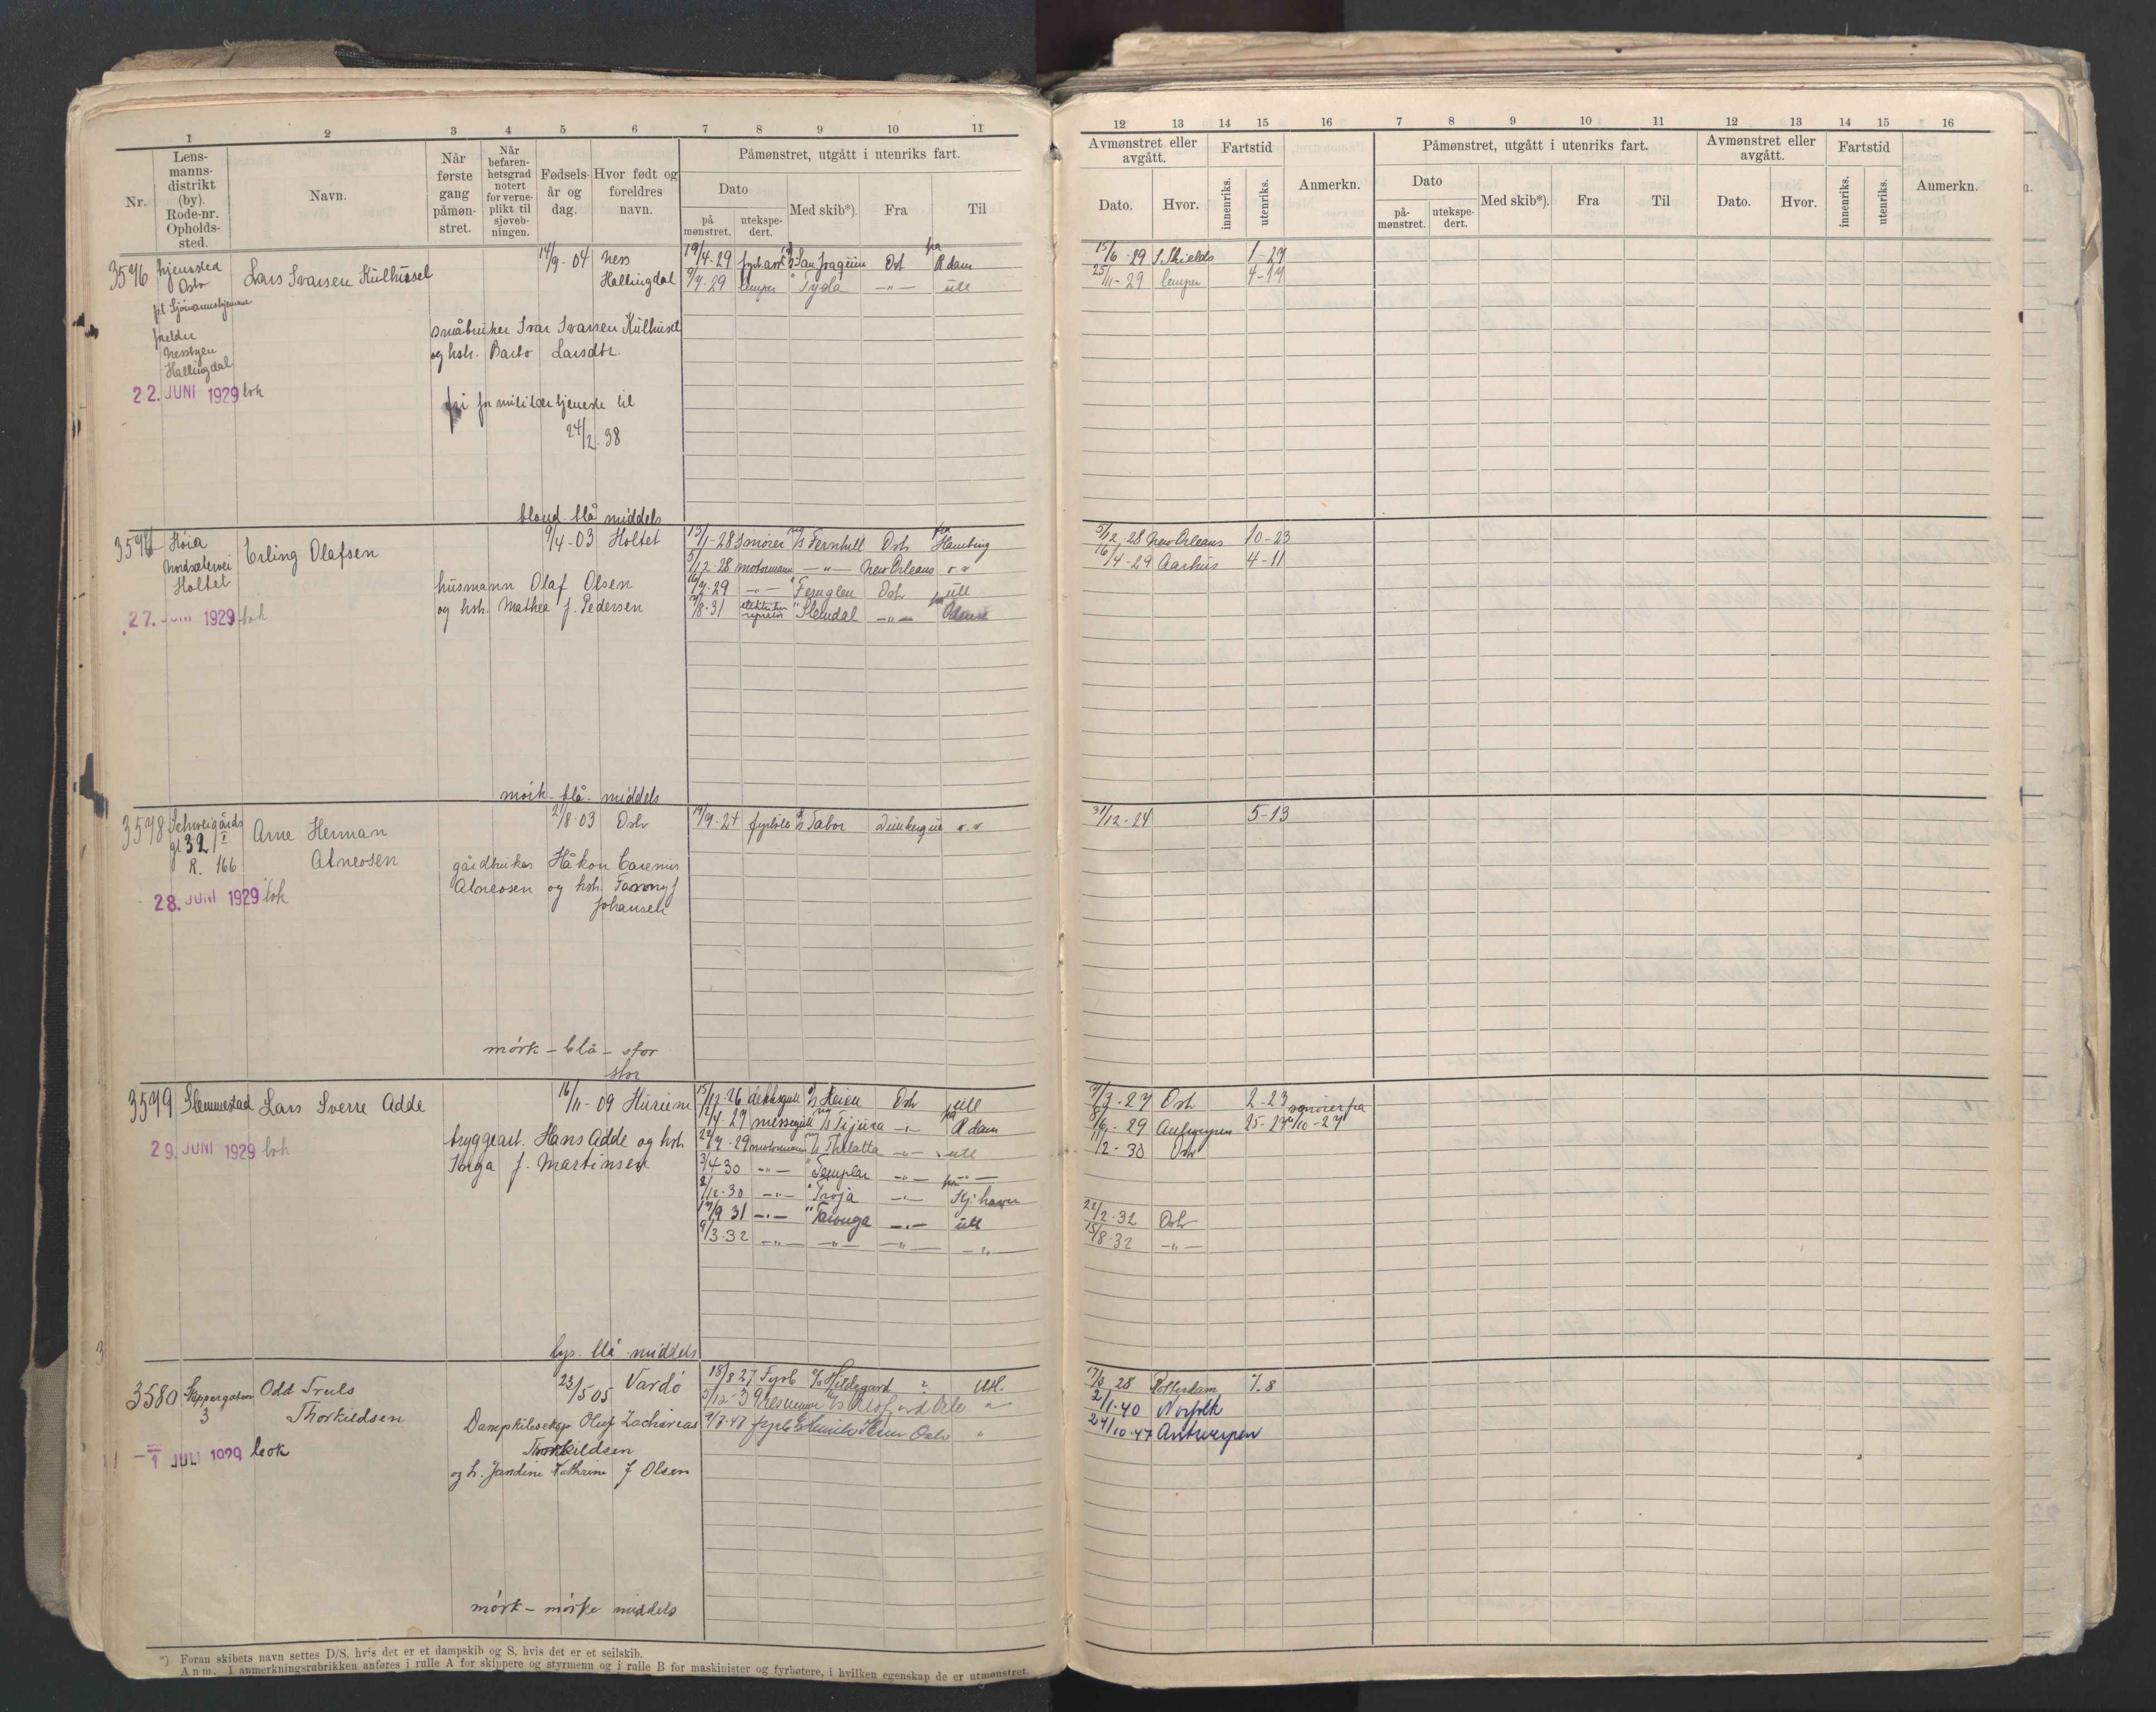 1 2 3 4 5 6 7 8 9 10 11
Nr.
Lens-
manns-
distrikt
(by).
Rode-nr.
Opholds-
sted.
Navn.
Når
første
gang
påmøn-
stret.
Når
befaren-
hetsgrad
notert
for verne-
plikt til
sjøveb-
ningen.
Fødsels-
år og
dag.
Hvor født og
foreldres
navn.
Påmønstret, utgått i utenriks fart.
Dato
på
mønstret.
utekspe-
dert.
Med skib*).
Fra
Til
3576 hjemsted Lars Ivarsen Kulhusel 14/9-04 Ness 19/4-29 San Joaquin Osl R dam
Oslo Hallingdal 9/7-29 lemper " Tyda —"— utl
pt. Sjømannshjemme
foreldre
Nesbyen
Hallingdal
22. JUNI 1929 bok
småbruker Ivar Ivarsen Kulhusel
og hst. Barbo Larsdtr.
fri for militærtjeneste til
24/2.38
blond blå middels
3577 Høia Erling Olafsen 9/4-03 Holtet 13/1-28 Smører M/S Fernhill Osl Hamburg
Nordsetervei
Holtet
5/12-28 motormann —"— New Orleans v.v
husmann Olaf Olsen 16/7-29 —"— " Fernglen Osl utl
og hst. Mathea f. Pedersen 7/8-31 " Slemdal —"—
27. JUNI 1929 bok
mørk - blå - middels
3578 Schweigårds Arne Herman 2/8-03 Oslo 17/9-24 fyrbøt D/S Tabor Dunkerque v.v
gt 32 I
R. 166 Abneosen
28. JUNI 1929 bok
gårdbruker Håkon Carenius
Abneosen og hst. Fanny f
Johansen
mørk - blå - stor
stor
3579 Slemmestad Lars Sverre Adde 16/11-09 Hurum 15/12-26 dekksgutt Heien Osl utl
12/4-27 messegutt M/S Tijuca —"— R dam
29. JUNI 1929 bok
bryggearb. Hans Adde og hst.
Inga f. Martinsen
22/7-29 motormann M/S Thelatta —"— utl
3/4 30 —"— " Templar —"— —"—
2/12.30 —"— " Troja —"— Kj.havn
17/9 31 —"— " Taronga —"— utl
9/3-32 —"— —"— —"— —"—
lys - blå - middels
3580 Skippergaten Odd Truls 23/5 05 Vardø 18/8 27 Fyrb D/S Hildegard ? Utl.
3 Thorkildsen
- 1 JULI 1929 bok
Dampskibseksp Oluf Zacharias
Thorkildsen
og h. Jandine Kathrine f Olsen
mørk - mørke middels
*) Foran skibets navn settes D/S, hvis det er et dampskib og S, hvis det er et seilskib.
Anm. I anmerkningsrubrikken anføres i rulle A for skippere og styrmenn og i rulle B for maskinister og fyrbøtere, i hvilken egenskap de er utmønstret.
12 13 14 15 16 7 8 9 10 11 12 13 14 15 16
Avmønstret eller
avgått.
Fartstid
Dato.
Hvor.
innenriks.
utenriks.
Anmerkn.
Påmønstret, utgått i utenriks fart.
Dato
på-
mønstret.
utekspe-
dert.
Med skib*).
Fra
Til
Avmønstret eller
avgått.
Fartstid
Dato.
Hvor.
innenriks.
utenriks.
Anmerkn.
15/6-29 S. Shields 1-27
25/11-29 lemper 4-17
5/12-28 New Orleans 10-23
16/4-29 Aarhus 4-11
31/12-24 5-13
9/3-27 Osl 2-23
8/6-29 Antwerpen smører fra
11/2-30 Osl
22/2-32 Osl
15/8-32 —"—
17/3 28 Rotterdam 7.8
2/1-40 Norfolk
24/10-47 Antwerpen